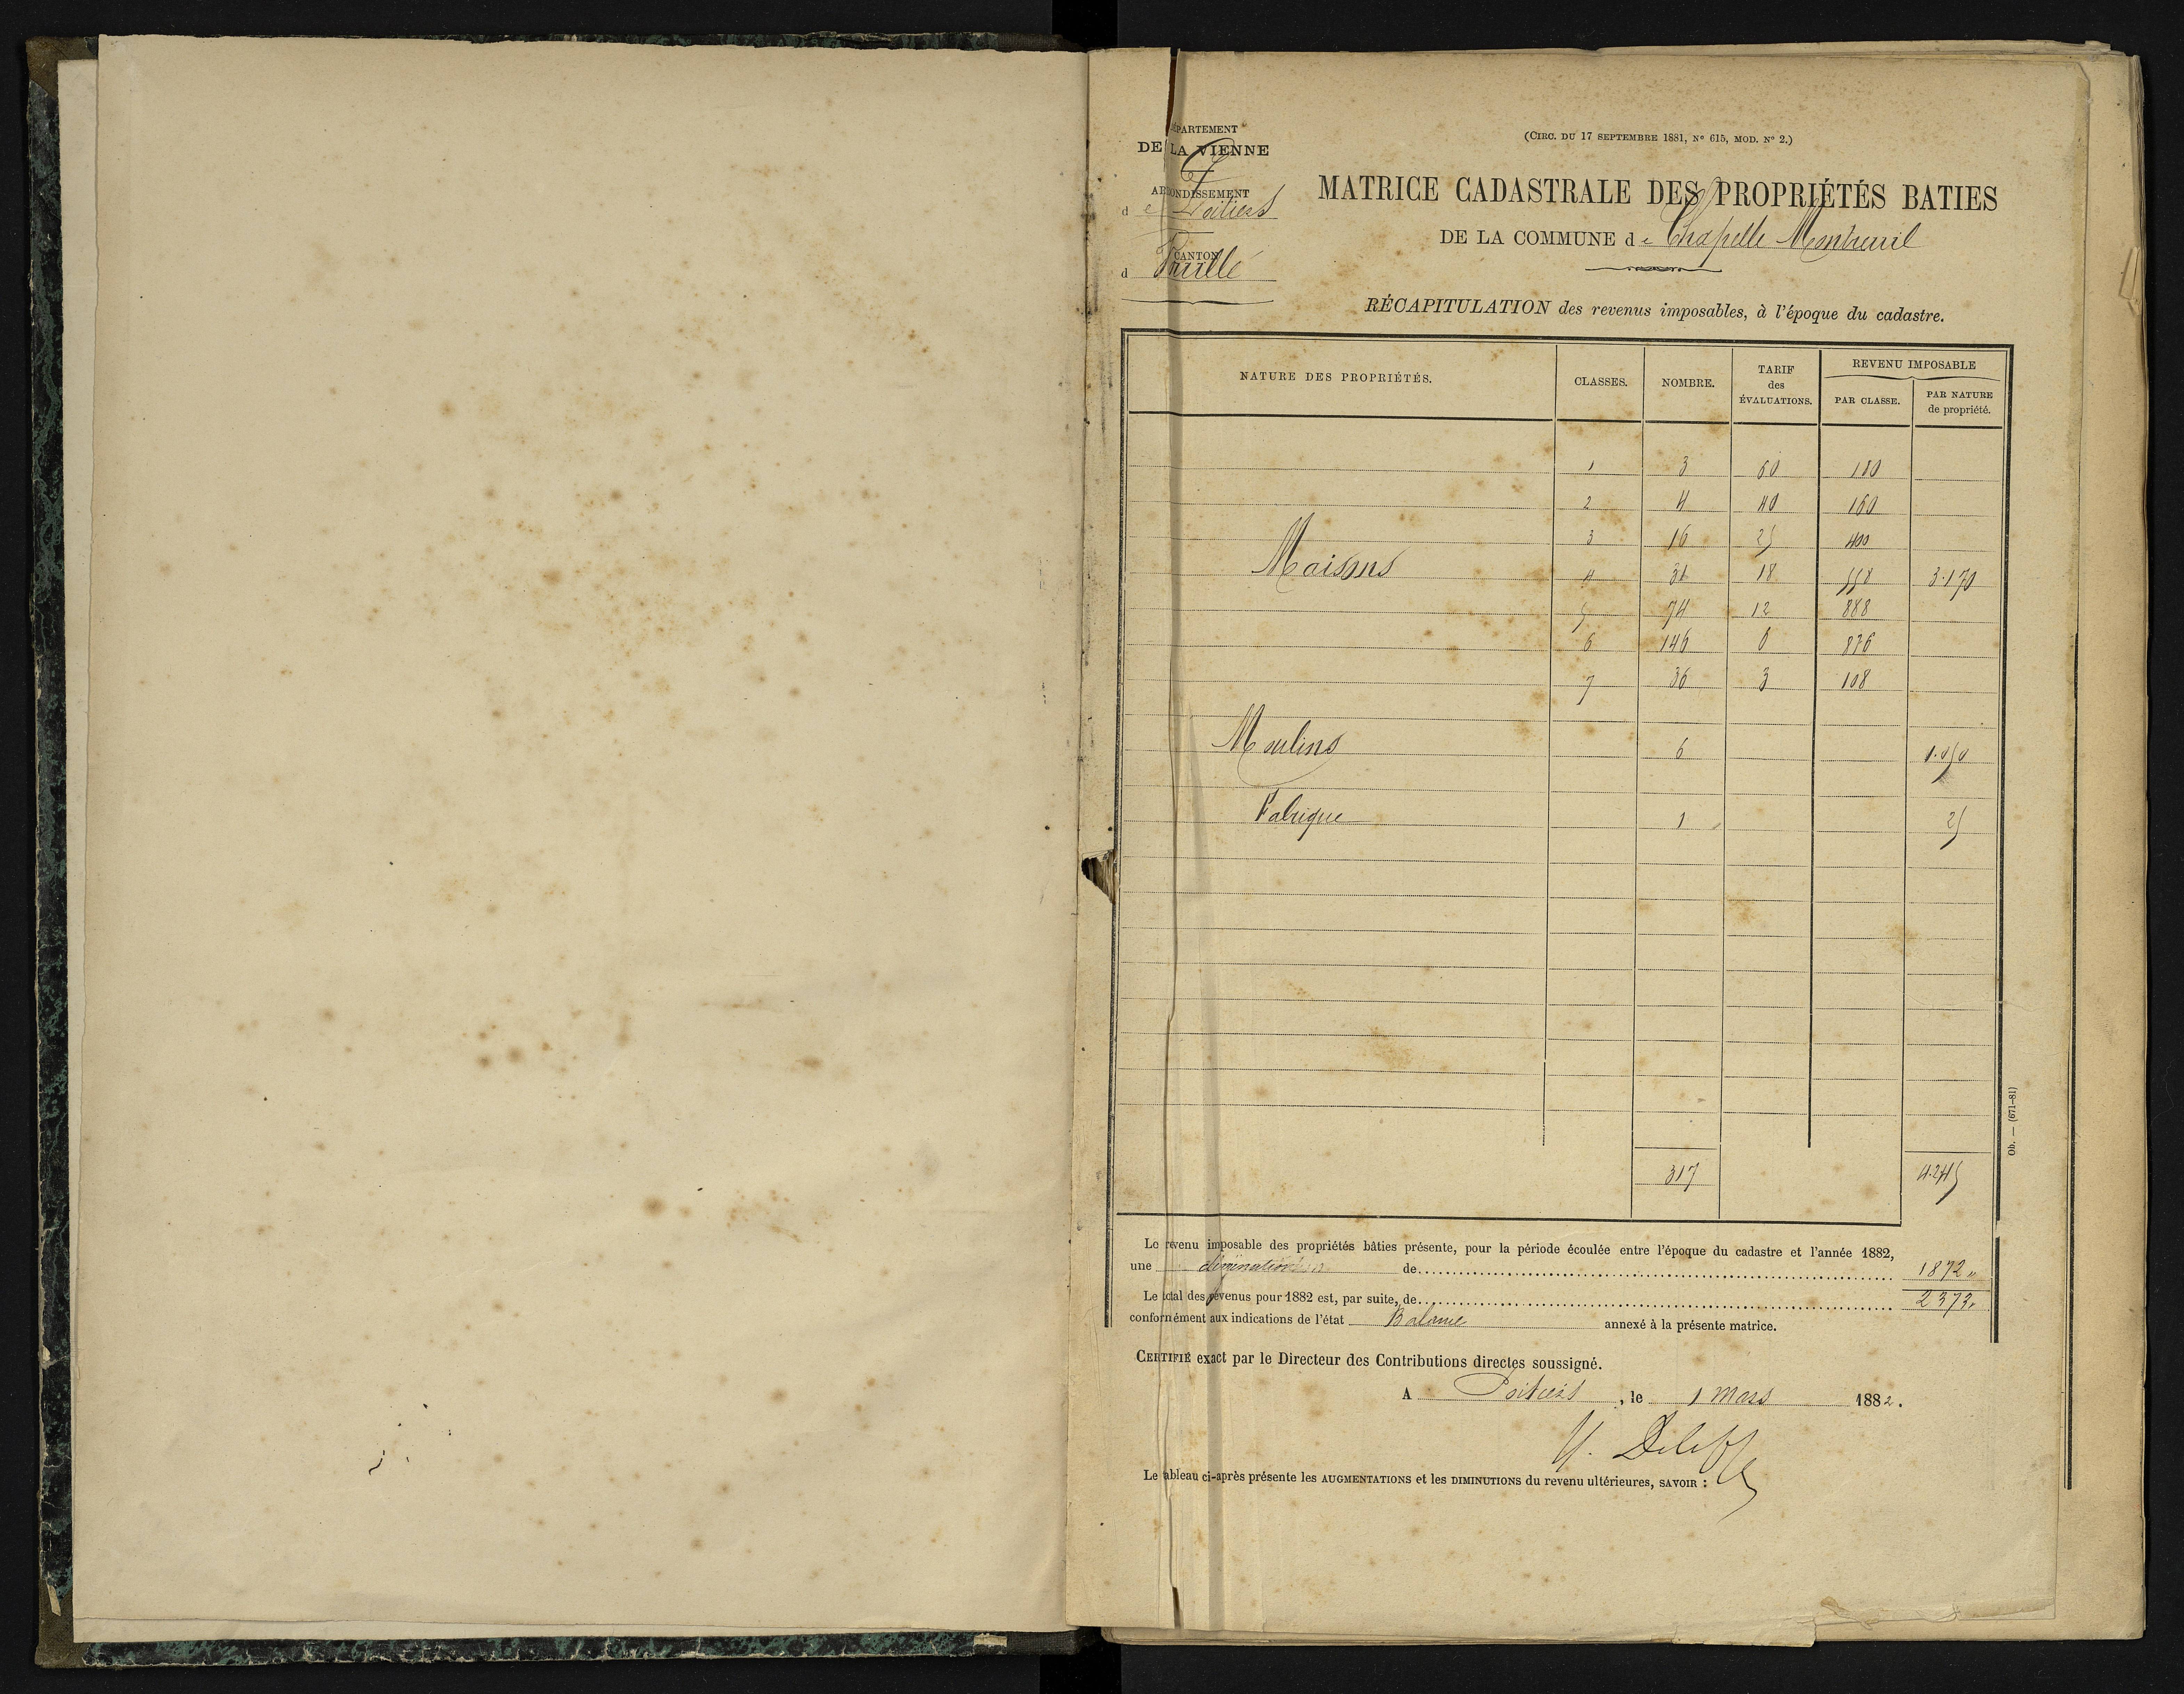 DÉPARTEMENT
DE LA VIENNE
ARRONDISSEMENT
de Poitiers
CANTON
d Vouillé
(CIRC. DU 17 SEPTEMBRE 1881, N° 615, MOD. N° 2.)
MATRICE CADASTRALE DES PROPRIÉTÉS BATIES
DE LA COMMUNE de Chapelle Montreuil
RÉCAPITULATION des revenus imposables, à l'époque du cadastre.
NATURE DES PROPRIÉTÉS. CLASSES. NOMBRE. TARIF des ÉVALUATIONS. REVENU IMPOSABLE
PAR CLASSE. PAR NATURE de propriété.
1 3 60 180
2 4 40 160
3 16 25 400
Maisons 4 31 18 558 3.170
5 74 12 888
6 146 6 876
7 36 3 108
Moulins 6 1.050
Fabrique 1 25
317 4.245
Le revenu imposable des propriétés bâties présente, pour la période écoulée entre l'époque du cadastre et l'année 1882,
une diminution de 1872 "
Le total des revenus pour 1882 est, par suite, de 2373 "
conformément aux indications de l'état annexé à la présente matrice.
CERTIFIÉ exact par le Directeur des Contributions directes soussigné.
A Poitiers, le 1 Mars 1882.
Le tableau ci-après présente les AUGMENTATIONS et les DIMINUTIONS du revenu ultérieures, SAVOIR :
Ob. — (671-81)